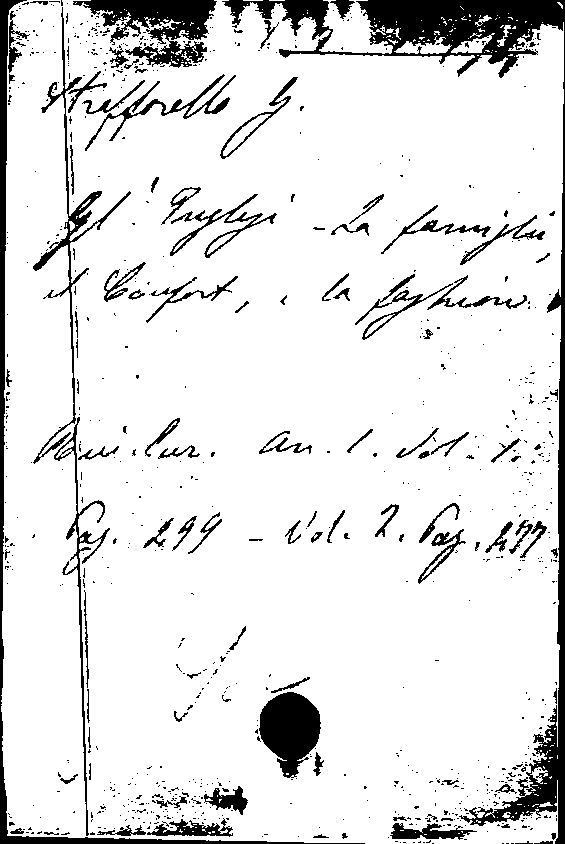 Strafforello G.
Gl' Inglesi - La famiglia,
il Confort, e la fashion.
An. 1. Vol. 1.
Pag. 299 - Vol. 2. Pag. 277